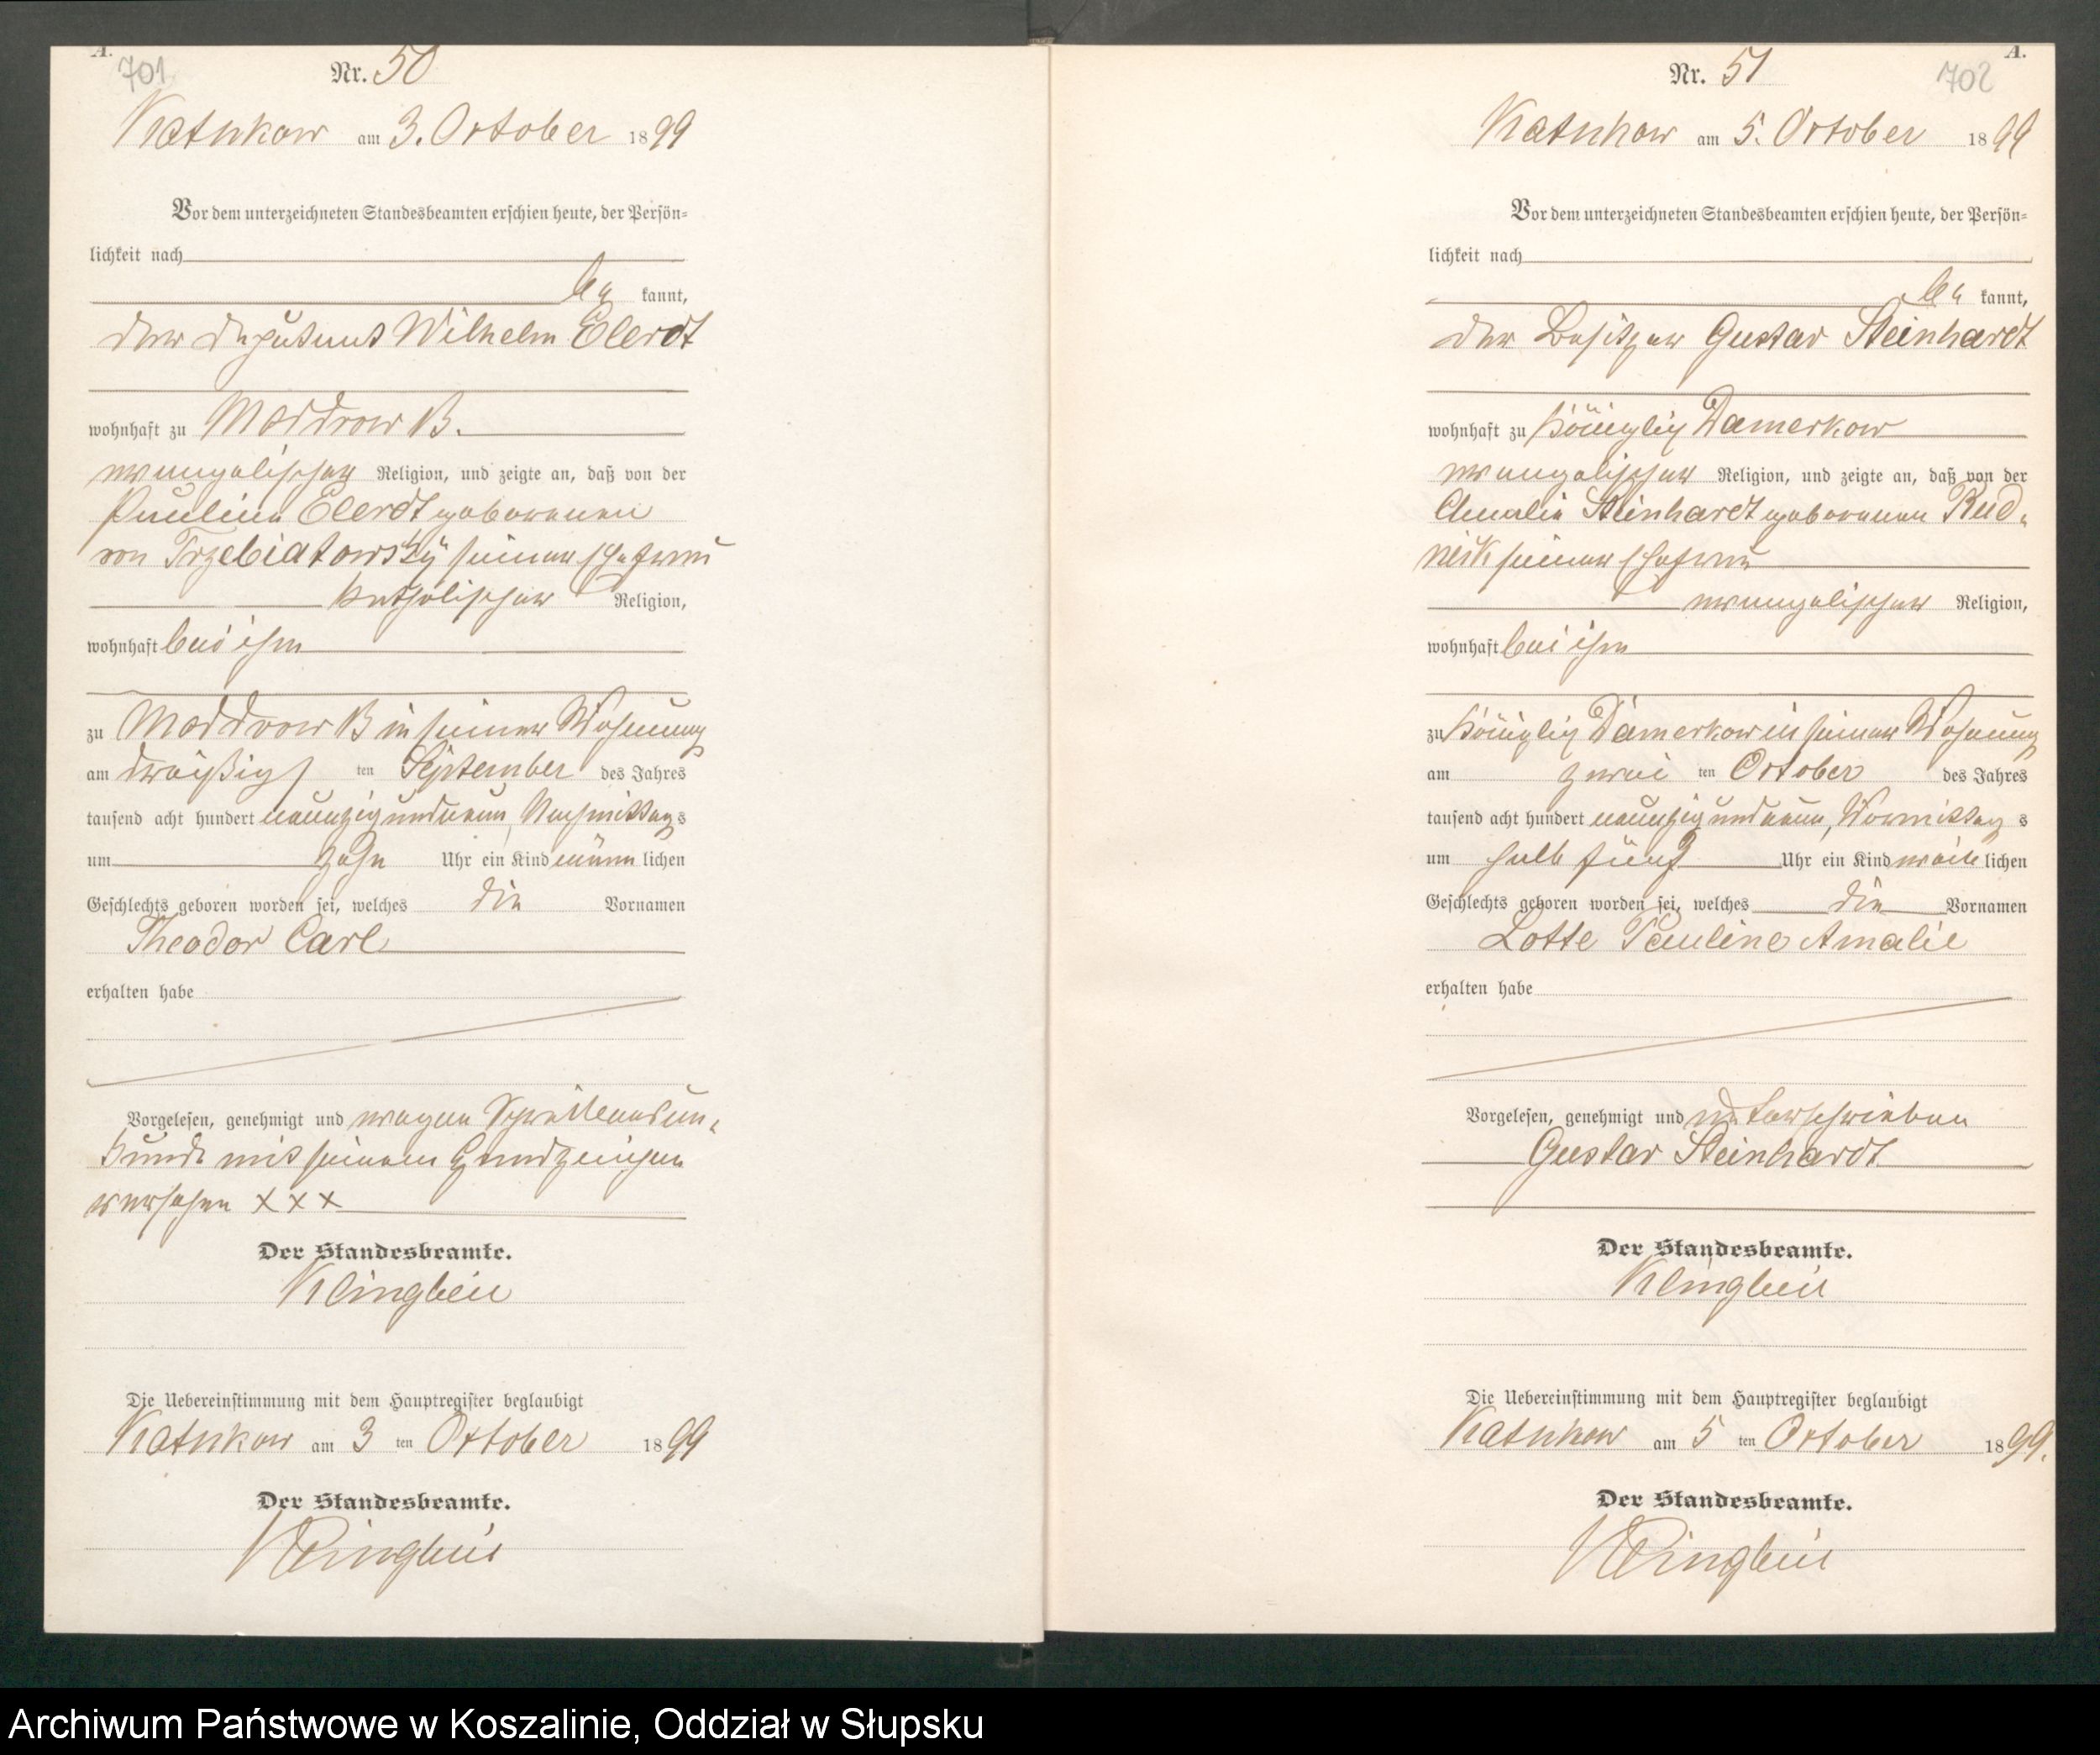 A.
701
Nr. 50
Katkow am 3. October 1899
Vor dem unterzeichneten Standesbeamten erschien heute, der Persön=
lichkeit nach
be kannt,
der Deputant Wilhelm Elerdt
wohnhaft zu Moddrow B.
evangelischer Religion, und zeigte an, daß von der
Pauline Elerdt geborenen
von Trzebiatowsky seiner Ehefrau
katholischer Religion,
wohnhaft bei ihm
zu Moddrow B in seiner Wohnung
am dreißigs ten September des Jahres
tausend acht hundert neunzig und neun, Nachmittag s
um zehn Uhr ein Kind männ lichen
Geschlechts geboren worden sei, welches die Vornamen
Theodor Carl
erhalten habe
Vorgelesen, genehmigt und wegen Schreibens un=
kunde mit seinem Handzeichen
versehen X X X
Der Standesbeamte.
Klingbeil
Die Uebereinstimmung mit dem Hauptregister beglaubigt
am 3 ten October 1899
Der Standesbeamte.
Klingbeil
A.
702
Nr. 51
am 5. October 1899
Vor dem unterzeichneten Standesbeamten erschien heute, der Persön=
lichkeit nach
be kannt,
der Besitzer Gustav Steinhardt
wohnhaft zu Königlich Damerkow
evangelischer Religion, und zeigte an, daß von der
Amalie Steinhardt geborenen Rud=
nick seiner Ehefrau
evangelischer Religion,
wohnhaft bei ihm
zu Königlich Damerkow in seiner Wohnung
am zwei ten October des Jahres
tausend acht hundert neunzig und neun, Vormittag s
um halb fünf Uhr ein Kind weib lichen
Geschlechts geboren worden sei, welches die Vornamen
Lotte Pauline Amalie
erhalten habe
Vorgelesen, genehmigt und unterschrieben
Gustav Steinhardt
Der Standesbeamte.
Klingbeil
Die Uebereinstimmung mit dem Hauptregister beglaubigt
am 5 ten October 1899.
Der Standesbeamte.
Klingbeil
Archiwum Państwowe w Koszalinie, Oddział w Słupsku